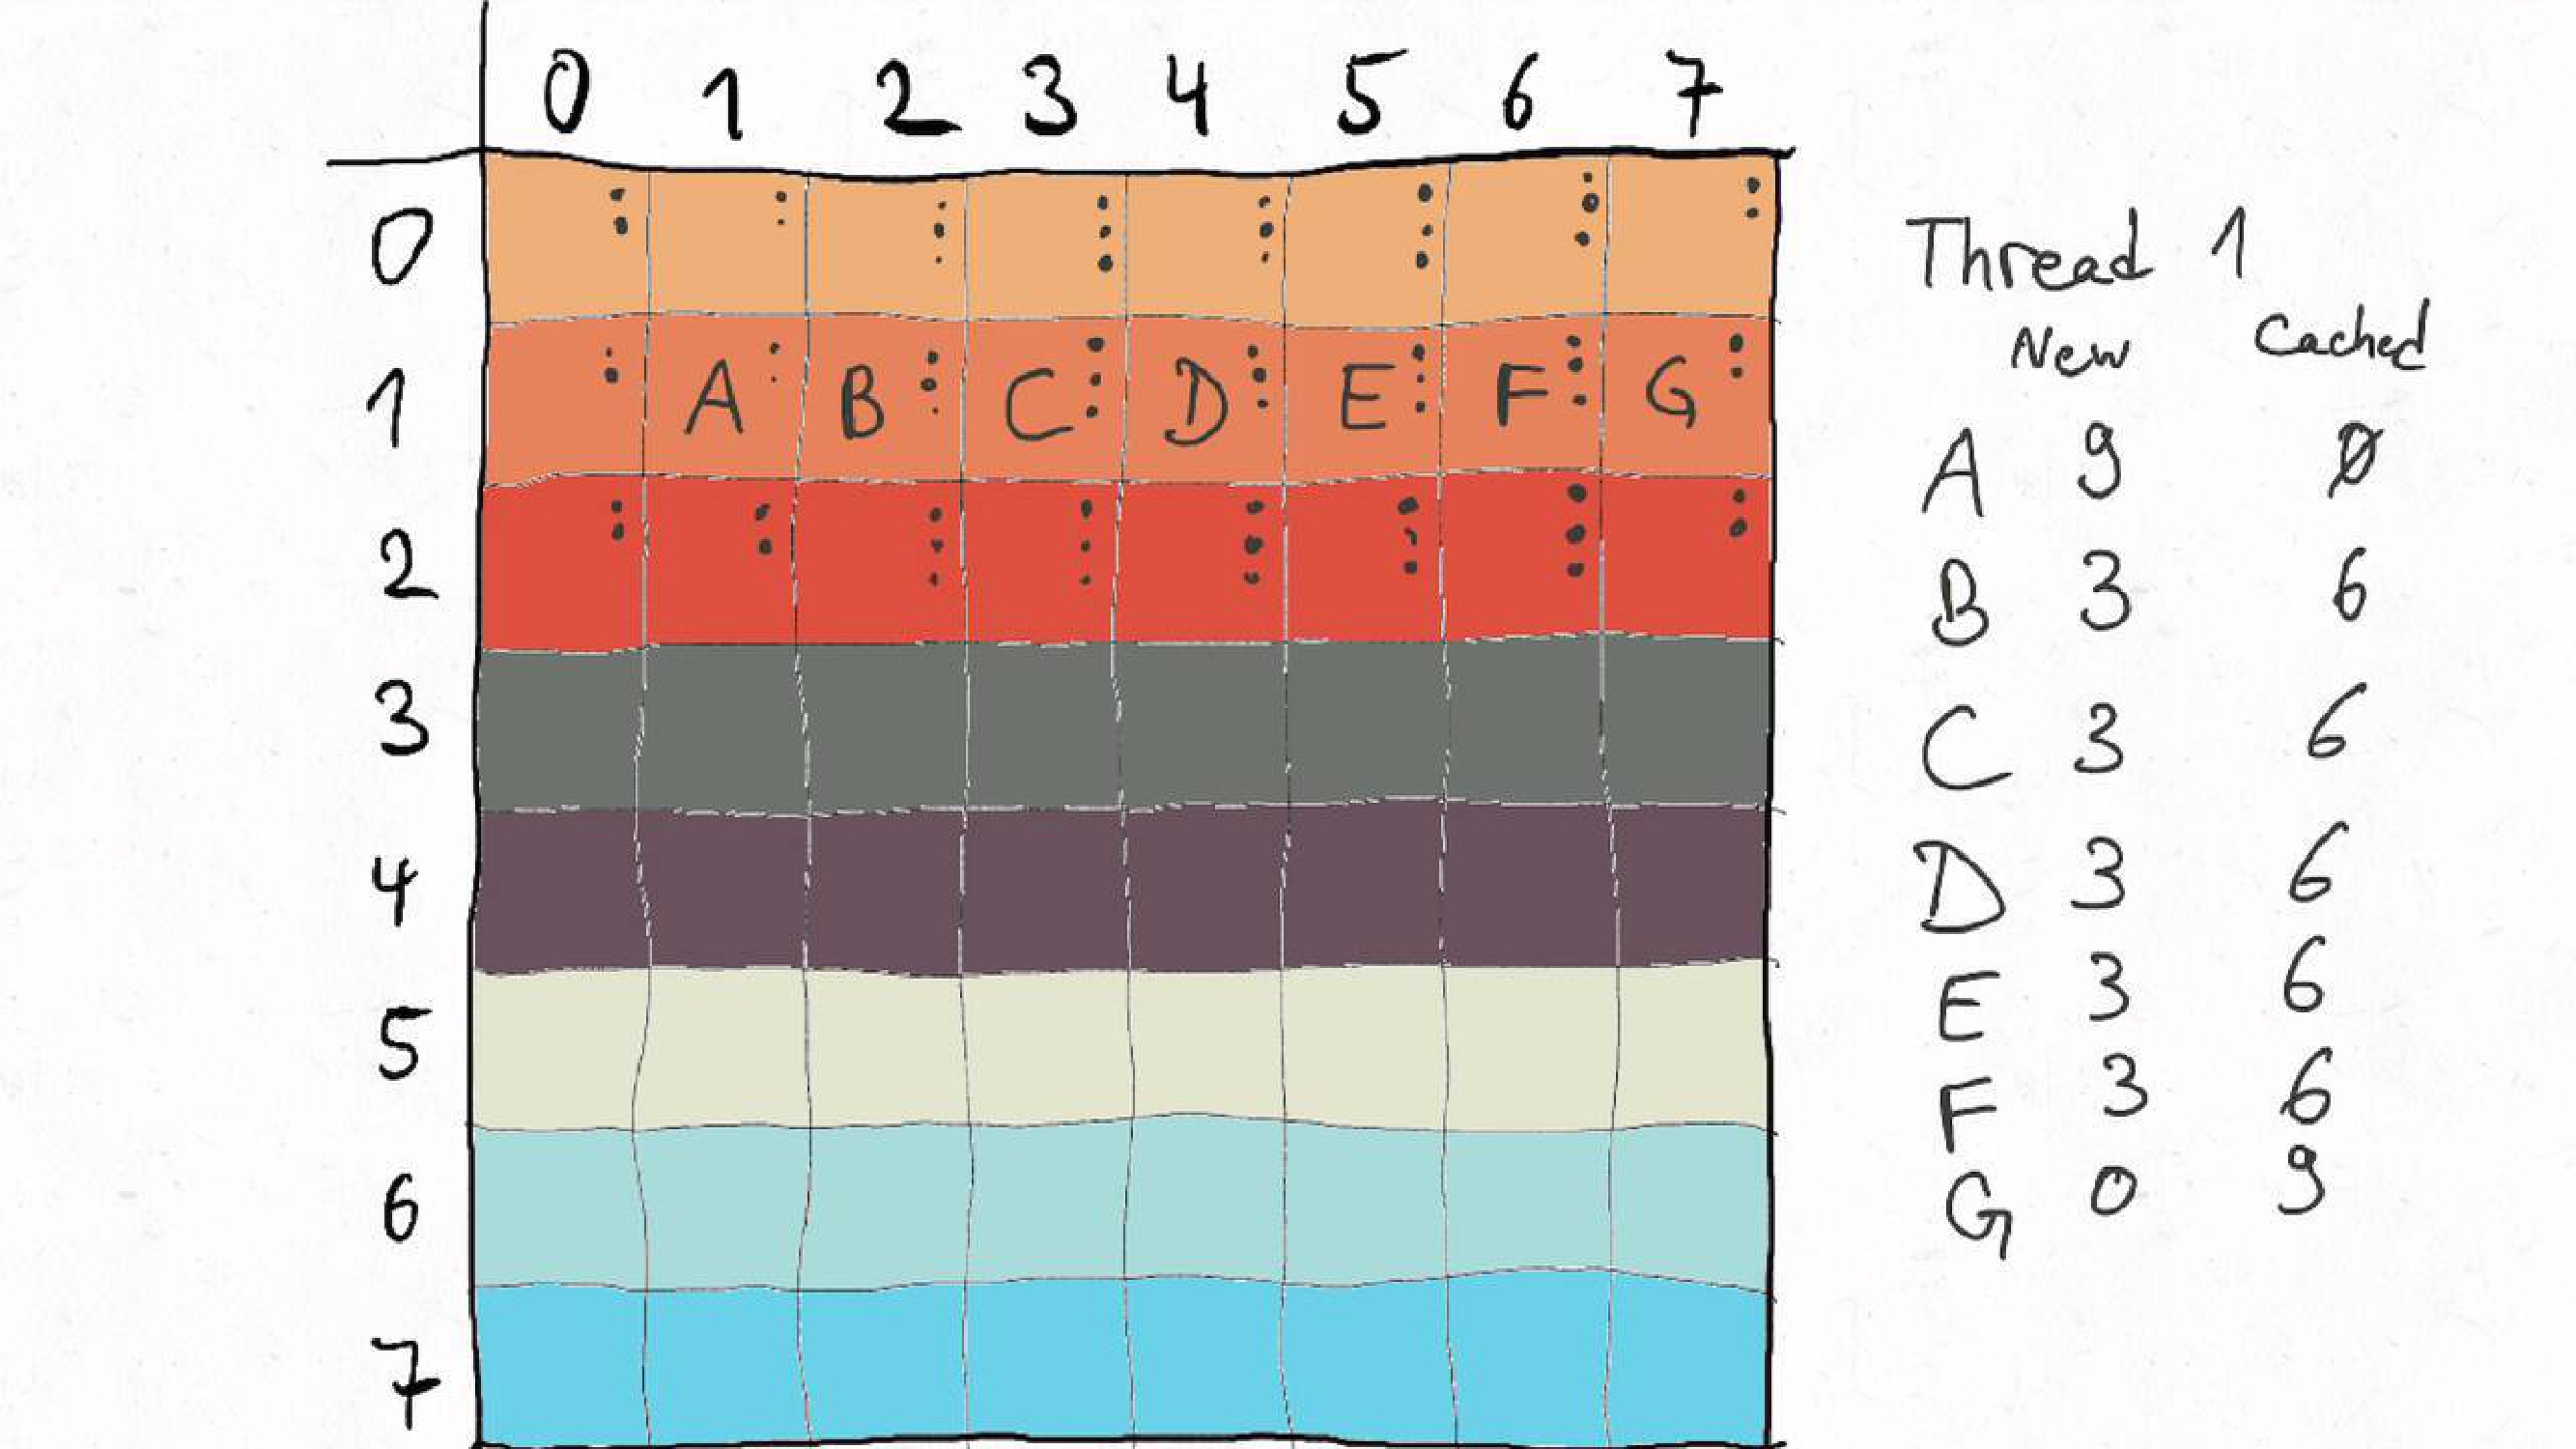 0 1 2 3 4 5 6 7
0
1 A B C D E F G
2
3
4
5
6
7
Thread 1
New Cached
A 9 0
B 3 6
C 3 6
D 3 6
E 3 6
F 3 6
G 0 9